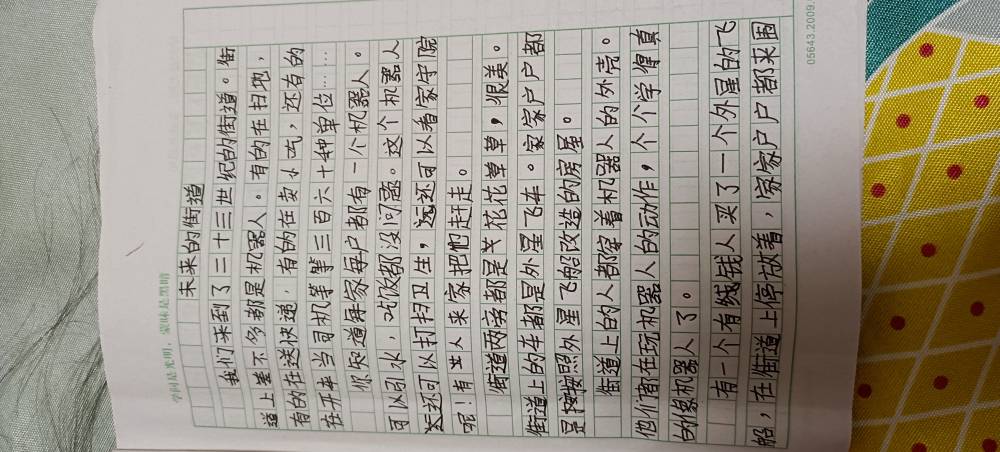 学问是光明，蒙昧是黑暗
未来的街道
我们来到了二十三世纪的街道。街
道上差不多都是机器人。有的在扫地，
有的在送快递，有的在卖小吃，还有的
在开车当司机等等三百六十种单位……
你知道每家每户都有一个机器人。
可以喝水，吃饭都没问题。这个机器人
还可以打扫卫生，还可以看家守院
呢！有业人来家把他赶走。
街道两旁都是关花花草草，很美。
街道上的车都是外星飞车。家家户户都
是按照外星飞船改造的房屋。
街道上的人都穿着机器人的外壳。
他们都在玩机器人的动作，个个学得真
的像机器人了。
有一个有钱人买了一个外星的飞
船，在街道上停放着，家家户户都来围
05643.2009.